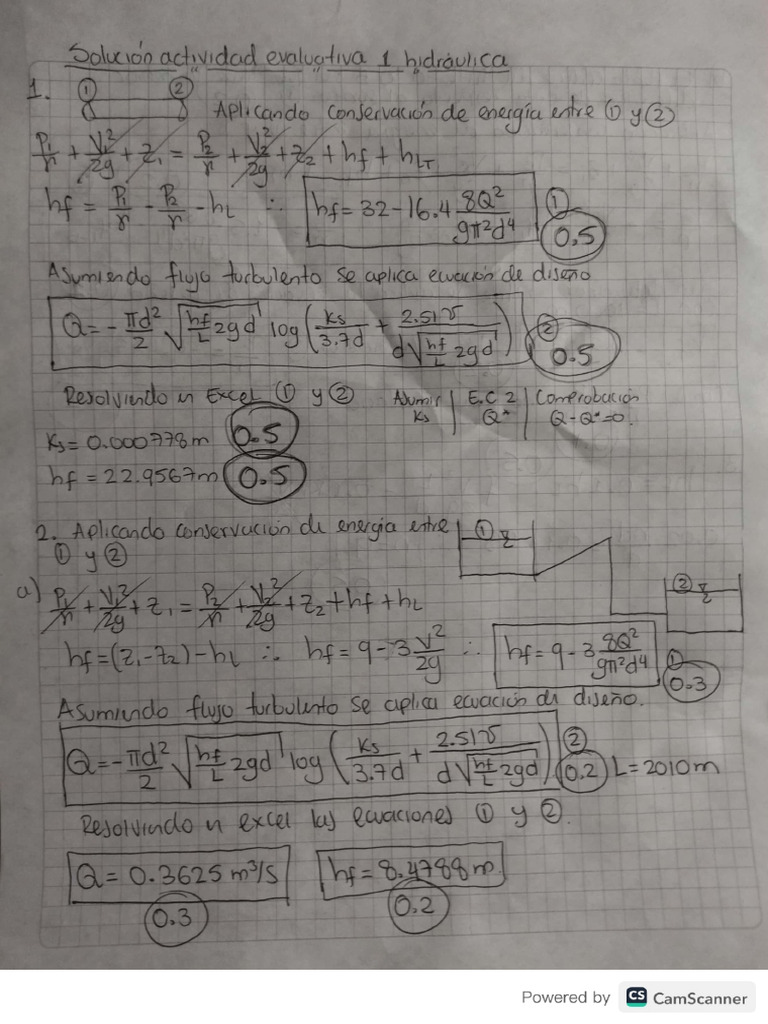 Solución actividad evaluativa 1 hidráulica
1. ① ② Aplicando conservación de energía entre ① y ②
P₁/γ + V₁²/2g + Z₁ = P₂/γ + V₂²/2g + Z₂ + hf + hLT
hf = P₁/γ - P₂/γ - hL ∴ hf = 32 - 16.4 8Q²/gπ²d⁴ ① 0.5
Asumiendo flujo turbulento se aplica ecuación de diseño
Q = - πd²/2 √(hf/L 2gd) log(ks/3.7d + 2.51ν/d√(hf/L 2gd)) ② 0.5
Resolviendo en Excel ① y ② Asumir ks | E.C 2 Q* | Comprobación Q - Q* = 0.
ks = 0.000778m 0.5
hf = 22.9567m 0.5
2. Aplicando conservación de energía entre ① y ② ① ②
a) P₁/γ + V₁²/2g + Z₁ = P₂/γ + V₂²/2g + Z₂ + hf + hL
hf = (Z₁ - Z₂) - hL ∴ hf = 9 - 3 V²/2g ∴ hf = 9 - 3 8Q²/gπ²d⁴ ① 0.3
Asumiendo flujo turbulento se aplica ecuación de diseño.
Q = - πd²/2 √(hf/L 2gd) log(ks/3.7d + 2.51ν/d√(hf/L 2gd)) ② 0.2 L = 2010m
Resolviendo en excel las ecuaciones ① y ②.
Q = 0.3625 m³/s hf = 8.4788 m
0.3 0.2
Powered by CS CamScanner